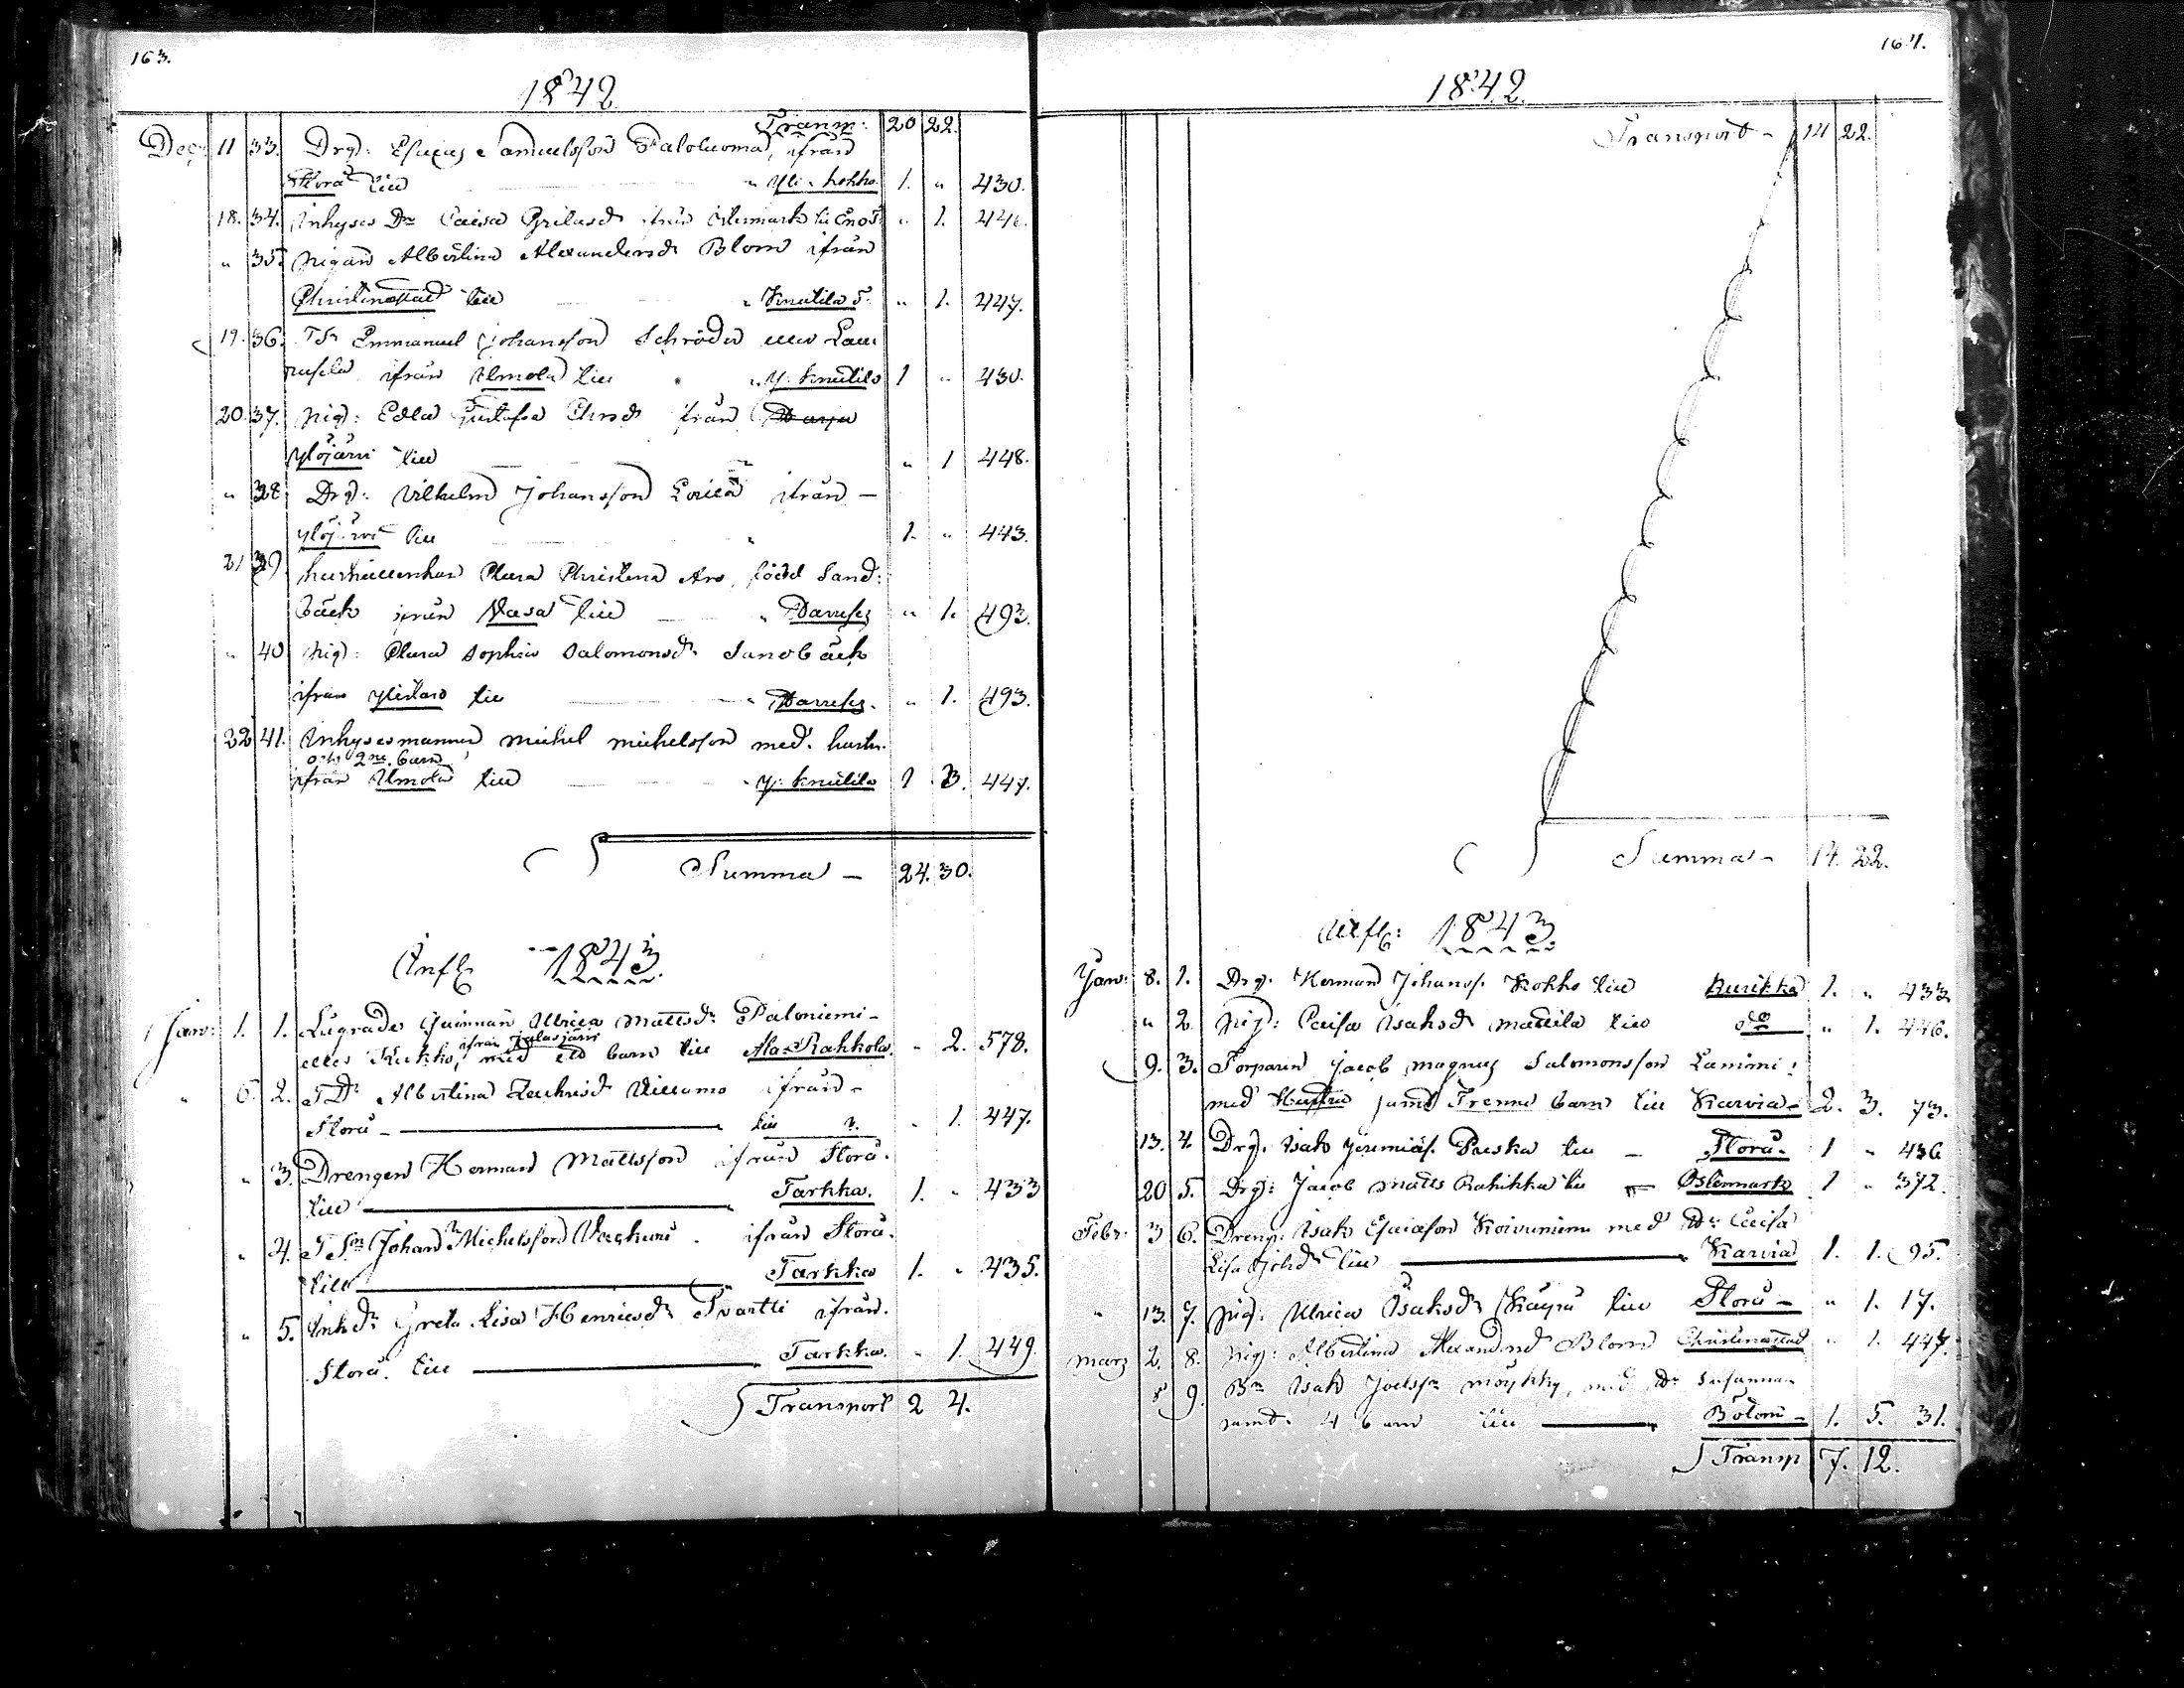 163.
1842
Transp: 20 22.
Dec: 11 33. Drg: Esaias Samuelsson Paloluoma, ifrån
Storå till " Yli-kokko. 1. " 430.
18. 34. Inhyses Dr Caisa Grilsdr ifrån Östermark till " 1. 446.
" 35. pigan Albertina Alexandersdr Blom ifrån
Christinestad till " Knuutila " 1. 447.
19. 36. TSn Emmanuel Johansson Schröder eller Lau
ifrån Ilmola till " Y: Knuutila 1 " 430.
20. 37. pig: Edla Gustafva ifrån
Ylöjärvi till " 1 448.
" 38. Drg: Vilhelm Johansson ifrån —
Ylöjärvi till " 1. " 443.
21 39. hushållerskan Clara Christina Aro, född Sand:
bäck ifrån Vasa till " 1. 493.
" 40 pig: Clara Sophia Salomonsdr Sandbäck
ifrån Ylistaro till " 1. 493.
22 41. Inhysesmannen Michel Michelsson med hustr.
och 2ne barn
ifrån Ilmola till " Y: Knuutila 1 3. 447.
Summa — 24. 30.
Infl 1843.
Jan: 1. 1. Lagrade Qvinnan Ulrica Mattsdr Paloniemi —
ifrån Jalasjärvi
eller Kukko, med ett barn till Ala-Rahkola. " 2. 578.
" 6. 2. TDr Albertina Zachrisdr ifrån —
Storå — till " 1. 447.
" 3. Drengen Herman Mattsson ifrån Storå.
till Tarkka. 1. " 433
" 4. TSon Johan Michelsson ifrån Storå.
till Tarkka 1. " 435.
" 5. Inh Dr Greta Lisa Henricsdr Svartti ifrån.
Storå. till Tarkka. " 1. 449.
Transport 2 4.
164.
1842.
Transport — 14 22.
Summa — 14. 22.
Utfl: 1843.
Jan: 8. 1. Drg. Herman Johanss. Kokko till Kurikka 1. " 433.
" 2. pig: Caisa Isaksdr Mattila till do " 1. 446.
9. 3. Torparen Jacob Magnus Salomonsson
med Hustru samt Trenne barn till Karvia — 2. 3. 73.
13. 4. Drg. Isak Jeremiæs. till — Storå. 1 " 436
20 5. Drg: Jacob Matts Rahikka till — Östermark 1 " 372.
Febr. 3 6. Dreng: Isak Esaiasson Koivuniemi med Dr: Caisa
Lisa Johdr till Karvia 1. 1. 95.
" 13. 7. pig: Ulrica Isaksdr Käyrä till Storå — " 1. 17.
Mars 2. 8. pig: Albertina Alexandersdr Blom Christinestad " 1. 447.
8 9. Bn Isak Joelsson Möykky, med Dr Susanna
samt 4 barn till Bötom — 1. 5. 31.
Transp 7. 12.